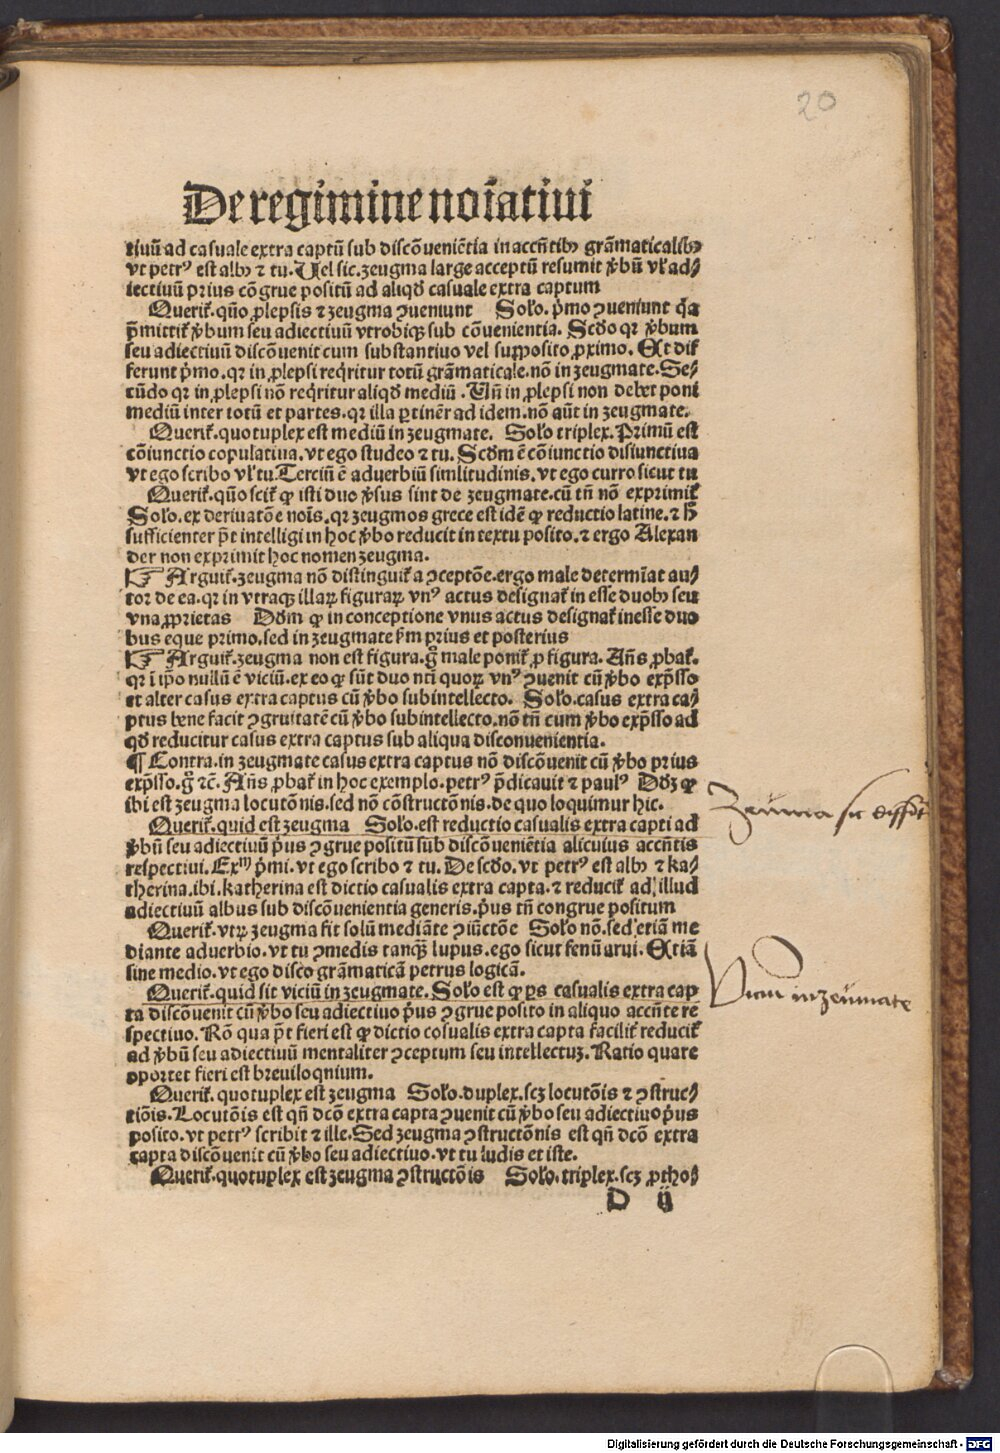 20
De regimine noīatiui
tiuū ad casuale extra captū sub discōueniētia in accn̄tibꝰ grāmaticalibꝰ
vt petrꝰ est albꝰ ⁊ tu. Uel sic. zeugma large acceptū resumit v̄bū vl̓ ad⸗
iectiuū prius cōgrue positū ad aliqd̄ casuale extra captum
Querit̄. quō ꝓlepsis ⁊ zeugma ꝯueniunt Solo. p̄mo ꝯueniunt q̄a
p̄mittit̄ v̄bum seu adiectiuū vtrobiqꝫ sub cōuenientia. Scd̄o qꝛ v̄bum
seu adiectiuū discōuenit cum substantiuo vel supposito ꝓximo. Et dif
ferunt p̄mo. qꝛ in ꝓlepsi reqͥritur totū grāmaticale. nō in zeugmate. Se⸗
cūdo qꝛ in ꝓlepsi nō reqͥritur aliqd̄ mediū. Un̄ in ꝓlepsi non debet poni
mediū inter totū et partes. qꝛ illa ꝑtinēt ad idem. nō aūt in zeugmate.
Querit̄. quotuplex est mediū in zeugmate. Solo triplex. Primū est
cōiunctio copulatiua. vt ego studeo ⁊ tu. Scd̄m ē cōiunctio disiunctiua
vt ego scribo vl̓ tu. Terciū ē aduerbiū simlitudinis. vt ego curro sicut tu
Querit̄. quō scit̄ ꝙ isti duo v̄sus sint de zeugmate. cū tn̄ nō exprimit̄
Solo. ex deriuatōe noīs. qꝛ zeugmos grece est idē ꝙ reductio latine. ⁊ h̄
sufficienter p̄t intelligi in hoc v̄bo reducit in textu posito. ⁊ ergo Alexan
der non exprimit hoc nomen zeugma.
☞ Arguit̄. zeugma nō distinguit̄ a ꝯceptōe. ergo male determīat au⸗
tor de ea. qꝛ in vtraqꝫ illaꝝ figuraꝝ vnꝰ actus designat̄ in esse duobꝰ seu
vna ꝓprietas Dd̄m ꝙ in conceptione vnus actus designat̄ inesse duo
bus eque primo. sed in zeugmate s̄m prius et posterius
☞ Arguit̄. zeugma non est figura. gͦ male ponit̄ ꝓ figura. An̄s ꝓbat̄.
qꝛ ī ip̄o nullū ē viciū. ex eo ꝙ sūt duo nti quoꝝ vnꝰ ꝯuenit cū v̄bo exp̄sso
et alter casus extra captus cū v̄bo subintellecto. Solo. casus extra ca⸗
ptus bene facit ꝯgruitatē cū v̄bo subintellecto. nō tn̄ cum v̄bo exp̄sso ad
qd̄ reducitur casus extra captus sub aliqua disconuenientia.
¶ Contra. in zeugmate casus extra captus nō discōuenit cū v̄bo prius
exp̄sso. gͦ ⁊c̄. An̄s ꝓbat̄ in hoc exemplo. petrꝰ p̄dicauit ⁊ paulꝰ Dd̄ꝫ ꝙ
ibi est zeugma locutōnis. sed nō cōstructōnis. de quo loquimur hic.
Querit̄. quid est zeugma Solo. est reductio casualis extra capti ad
v̄bū seu adiectiuū p̄us ꝯgrue positū sub discōueniētia alicuius accn̄tis
respectiui. Exᵐ p̄mi. vt ego scribo ⁊ tu. De scd̄o. vt petrꝰ est albꝰ ⁊ ka⸗
therina. ibi. katherina est dictio casualis extra capta. ⁊ reducit̄ ad illud
adiectiuū albus sub discōuenientia generis. p̄us tn̄ congrue positum
Querit̄. vtꝝ zeugma fit solū mediāte ꝯiūctōe Solo nō. sed etiā me
diante aduerbio. vt tu ꝯmedis tanqꝫ lupus. ego sicut fenū arui. Etiā
sine medio. vt ego disco grāmaticā petrus logicā.
Querit̄. quid sit viciū in zeugmate. Solo est ꝙ ꝑs casualis extra cap
ta discōuenit cū v̄bo seu adiectiuo p̄us ꝯgrue posito in aliquo accn̄te re
spectiuo. Rō qua p̄t fieri est ꝙ dictio cosualis extra capta facilit̄ reducit̄
ad v̄bū seu adiectiuū mentaliter ꝯceptum seu intellectuꝫ. Ratio quare
oportet fieri est breuiloqnium.
Querit̄. quotuplex est zeugma Solo. duplex. scꝫ locutōis ⁊ ꝯstruc⸗
tiōis. Locutōis est qn̄ dcō extra capta ꝯuenit cū v̄bo seu adiectiuo p̄us
posito. vt petrꝰ scribit ⁊ ille. Sed zeugma ꝯstructōnis est qn̄ dcō extra
capta discōuenit cū v̄bo seu adiectiuo. vt tu ludis et iste.
Querit̄. quotuplex est zeugma ꝯstructōis Solo. triplex. scꝫ ꝓtho⸗
D ij
Zeuma sic
in zeumate
Digitalisierung gefördert durch die Deutsche Forschungsgemeinschaft - DFG